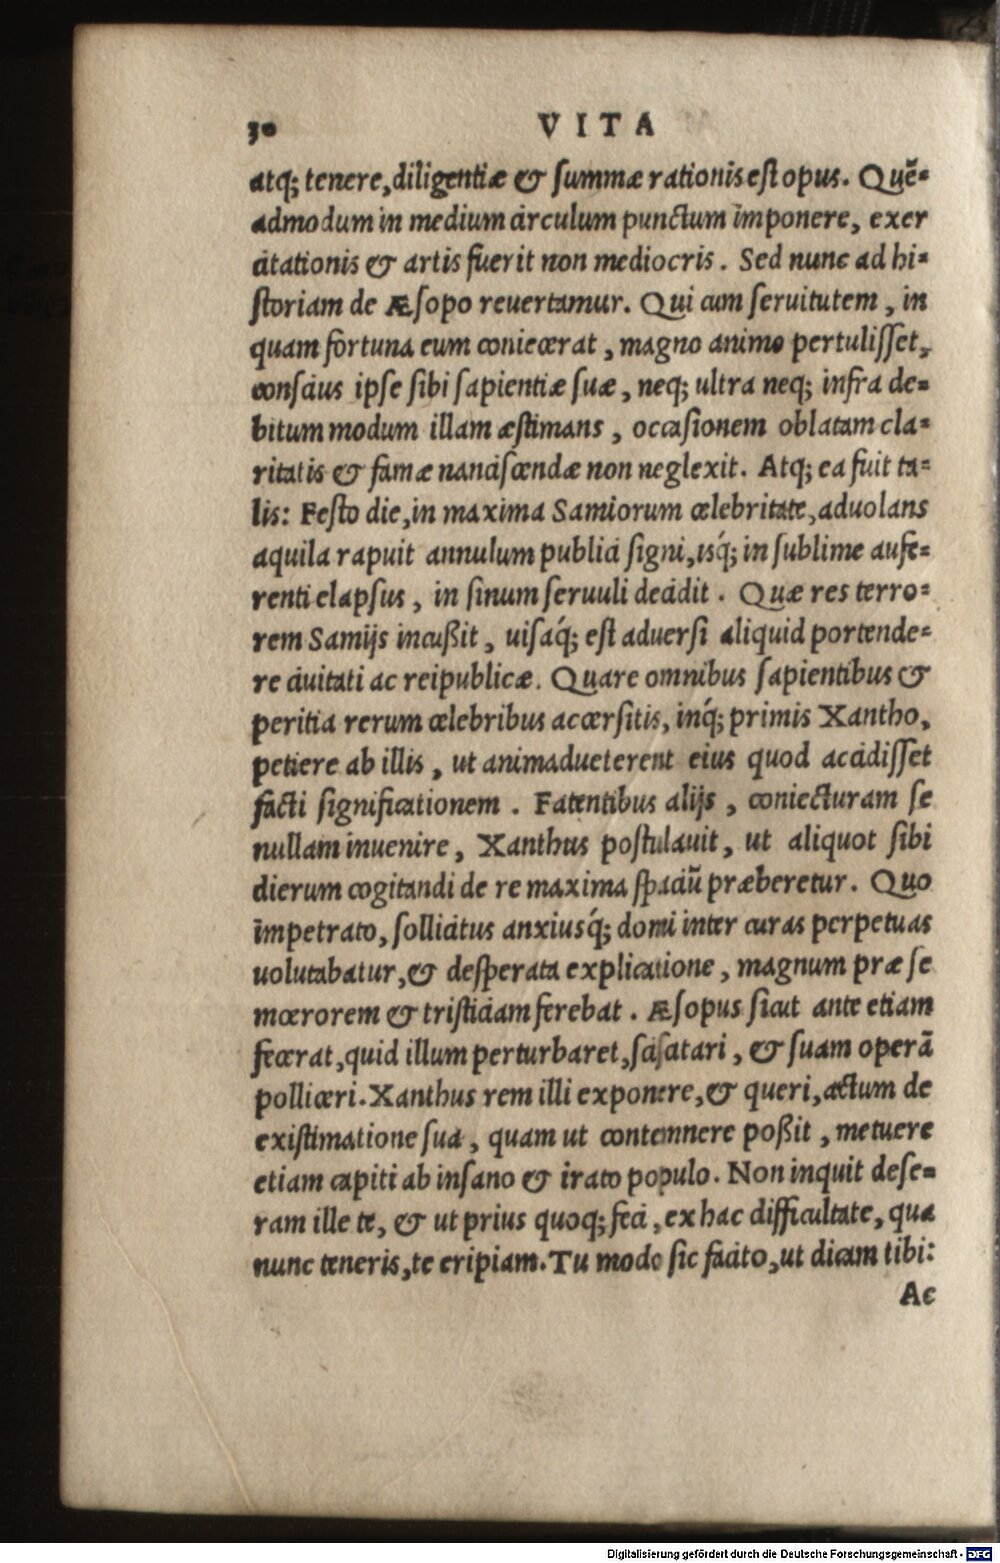 30 VITA
atq; tenere, diligentiæ & ſummæ rationis eſt opus. Quē-
admodum in medium circulum punctum imponere, exer
citationis & artis fuerit non mediocris. Sed nunc ad hi-
ſtoriam de Æſopo reuertamur. Qui cum ſeruitutem, in
quam fortuna eum coniecerat, magno animo pertuliſſet,
conſcius ipſe ſibi ſapientiæ ſuæ, neq; ultra neq; infra de-
bitum modum illam æſtimans, occaſionem oblatam cla-
ritatis & famæ nanciſcendæ non neglexit. Atq; ea fuit ta-
lis: Feſto die, in maxima Samiorum celebritate, aduolans
aquila rapuit annulum publici ſigni, isq́; in ſublime aufe-
renti elapſus, in ſinum ſeruuli decidit. Quæ res terro-
rem Samijs incußit, uiſaq́; eſt aduerſi aliquid portende-
re ciuitati ac reipublicæ. Quare omnibus ſapientibus &
peritia rerum celebribus accerſitis, inq́; primis Xantho,
petiere ab illis, ut animadueterent eius quod accidiſſet
facti ſignificationem. Fatentibus alijs, coniecturam ſe
nullam inuenire, Xanthus poſtulauit, ut aliquot ſibi
dierum cogitandi de re maxima ſpaciū præberetur. Quo
impetrato, ſollicitus anxiusq́; domi inter curas perpetuas
uolutabatur, & deſperata explicatione, magnum præ ſe
mœrorem & triſticiam ferebat. Æſopus ſicut ante etiam
fecerat, quid illum perturbaret, ſciſcitari, & ſuam operā
polliceri. Xanthus rem illi exponere, & queri, actum de
exiſtimatione ſua, quam ut contemnere poßit, metuere
etiam capiti ab inſano & irato populo. Non inquit deſe-
ram ille te, & ut prius quoq; feci, ex hac difficultate, qua
nunc teneris, te eripiam. Tu modo ſic facito, ut dicam tibi:
Ac
Digitalisierung gefördert durch die Deutsche Forschungsgemeinschaft - DFG